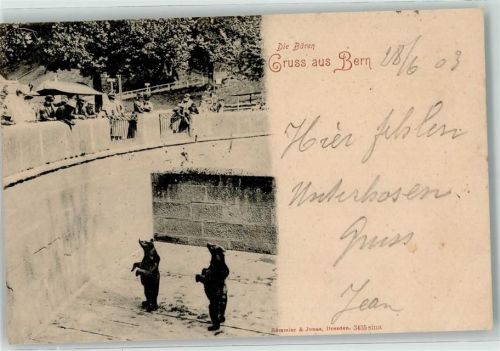 Die Bären
Gruss aus Bern 28/6 03
Hier fehlen
Unterhosen.
Gruss
Jean
Römmler & Jonas, Dresden. 3435 sina